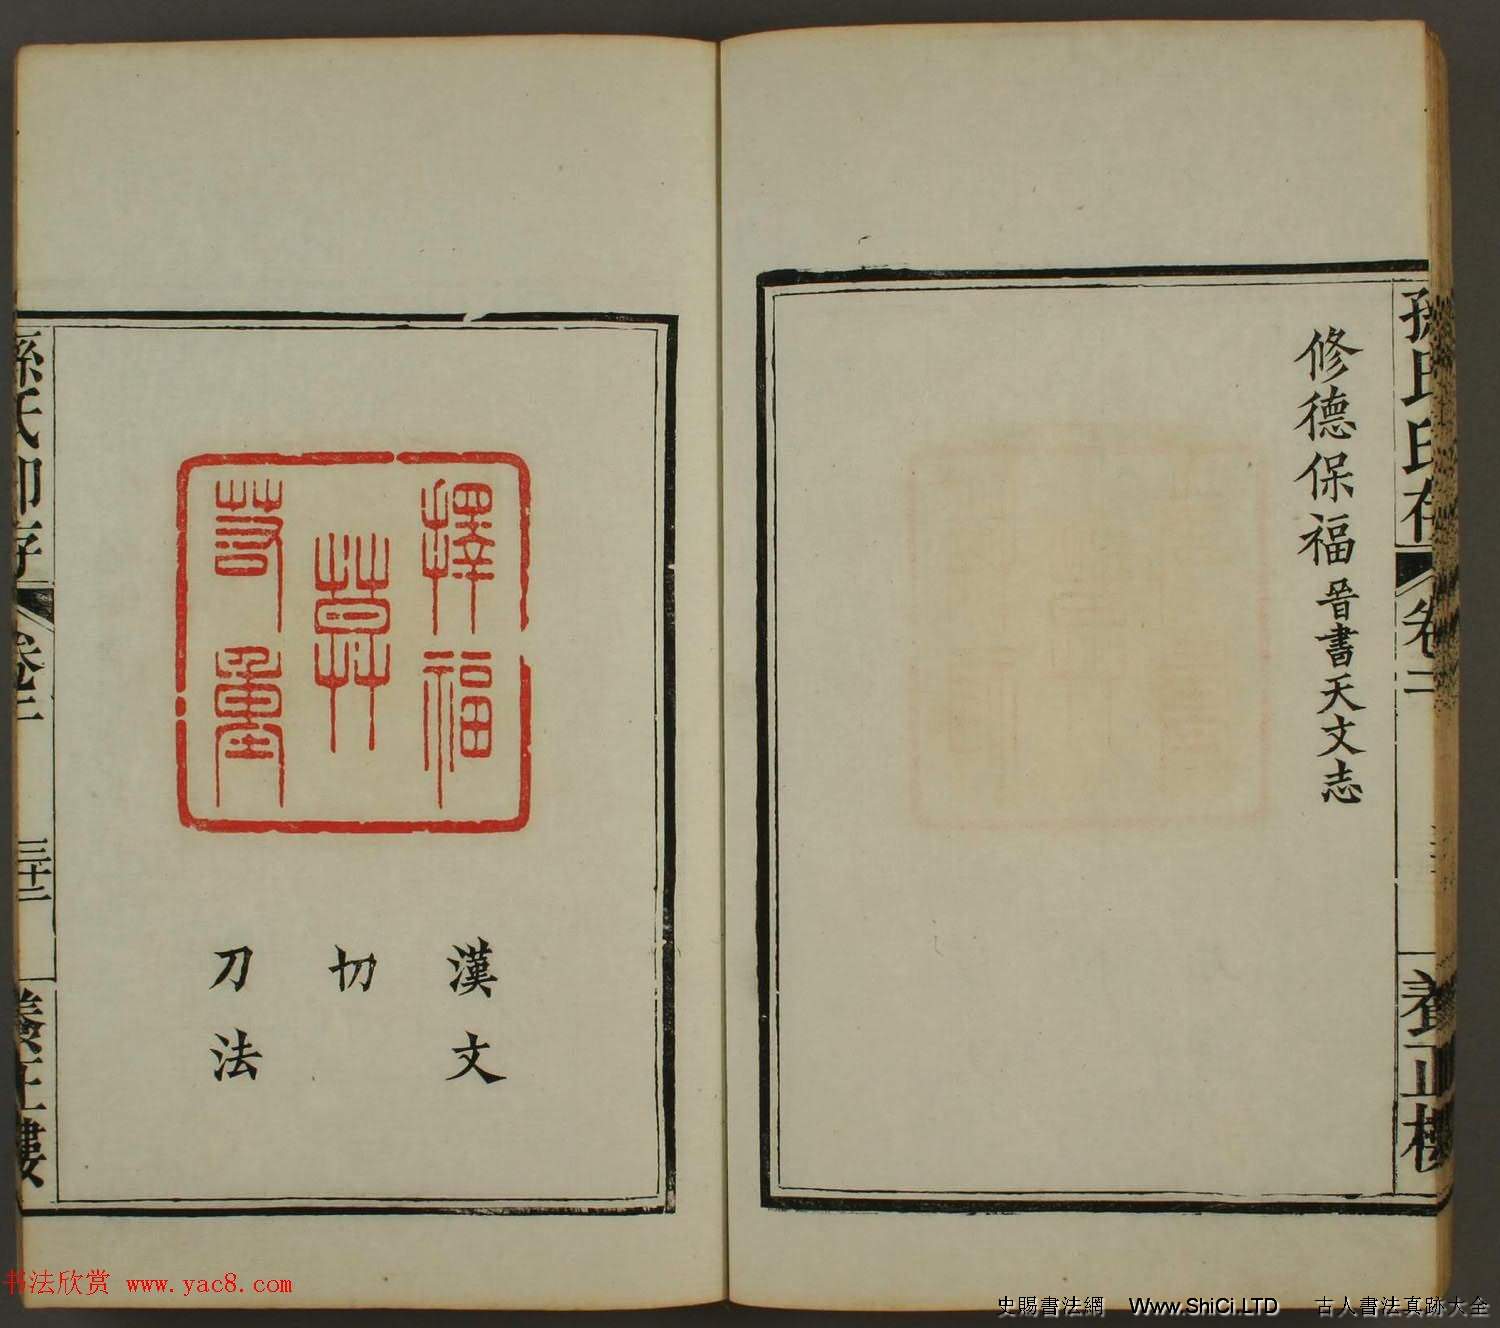 孫氏印存 卷二 養正樓
修德保福 晉書天文志
擇福
莫
若重
漢文
切
刀法
孫氏印存 卷二 三十二 養正樓
书法欣赏 www.yac8.com
史賜書法網 Www.ShiCi.LTD 古人書法真跡大全